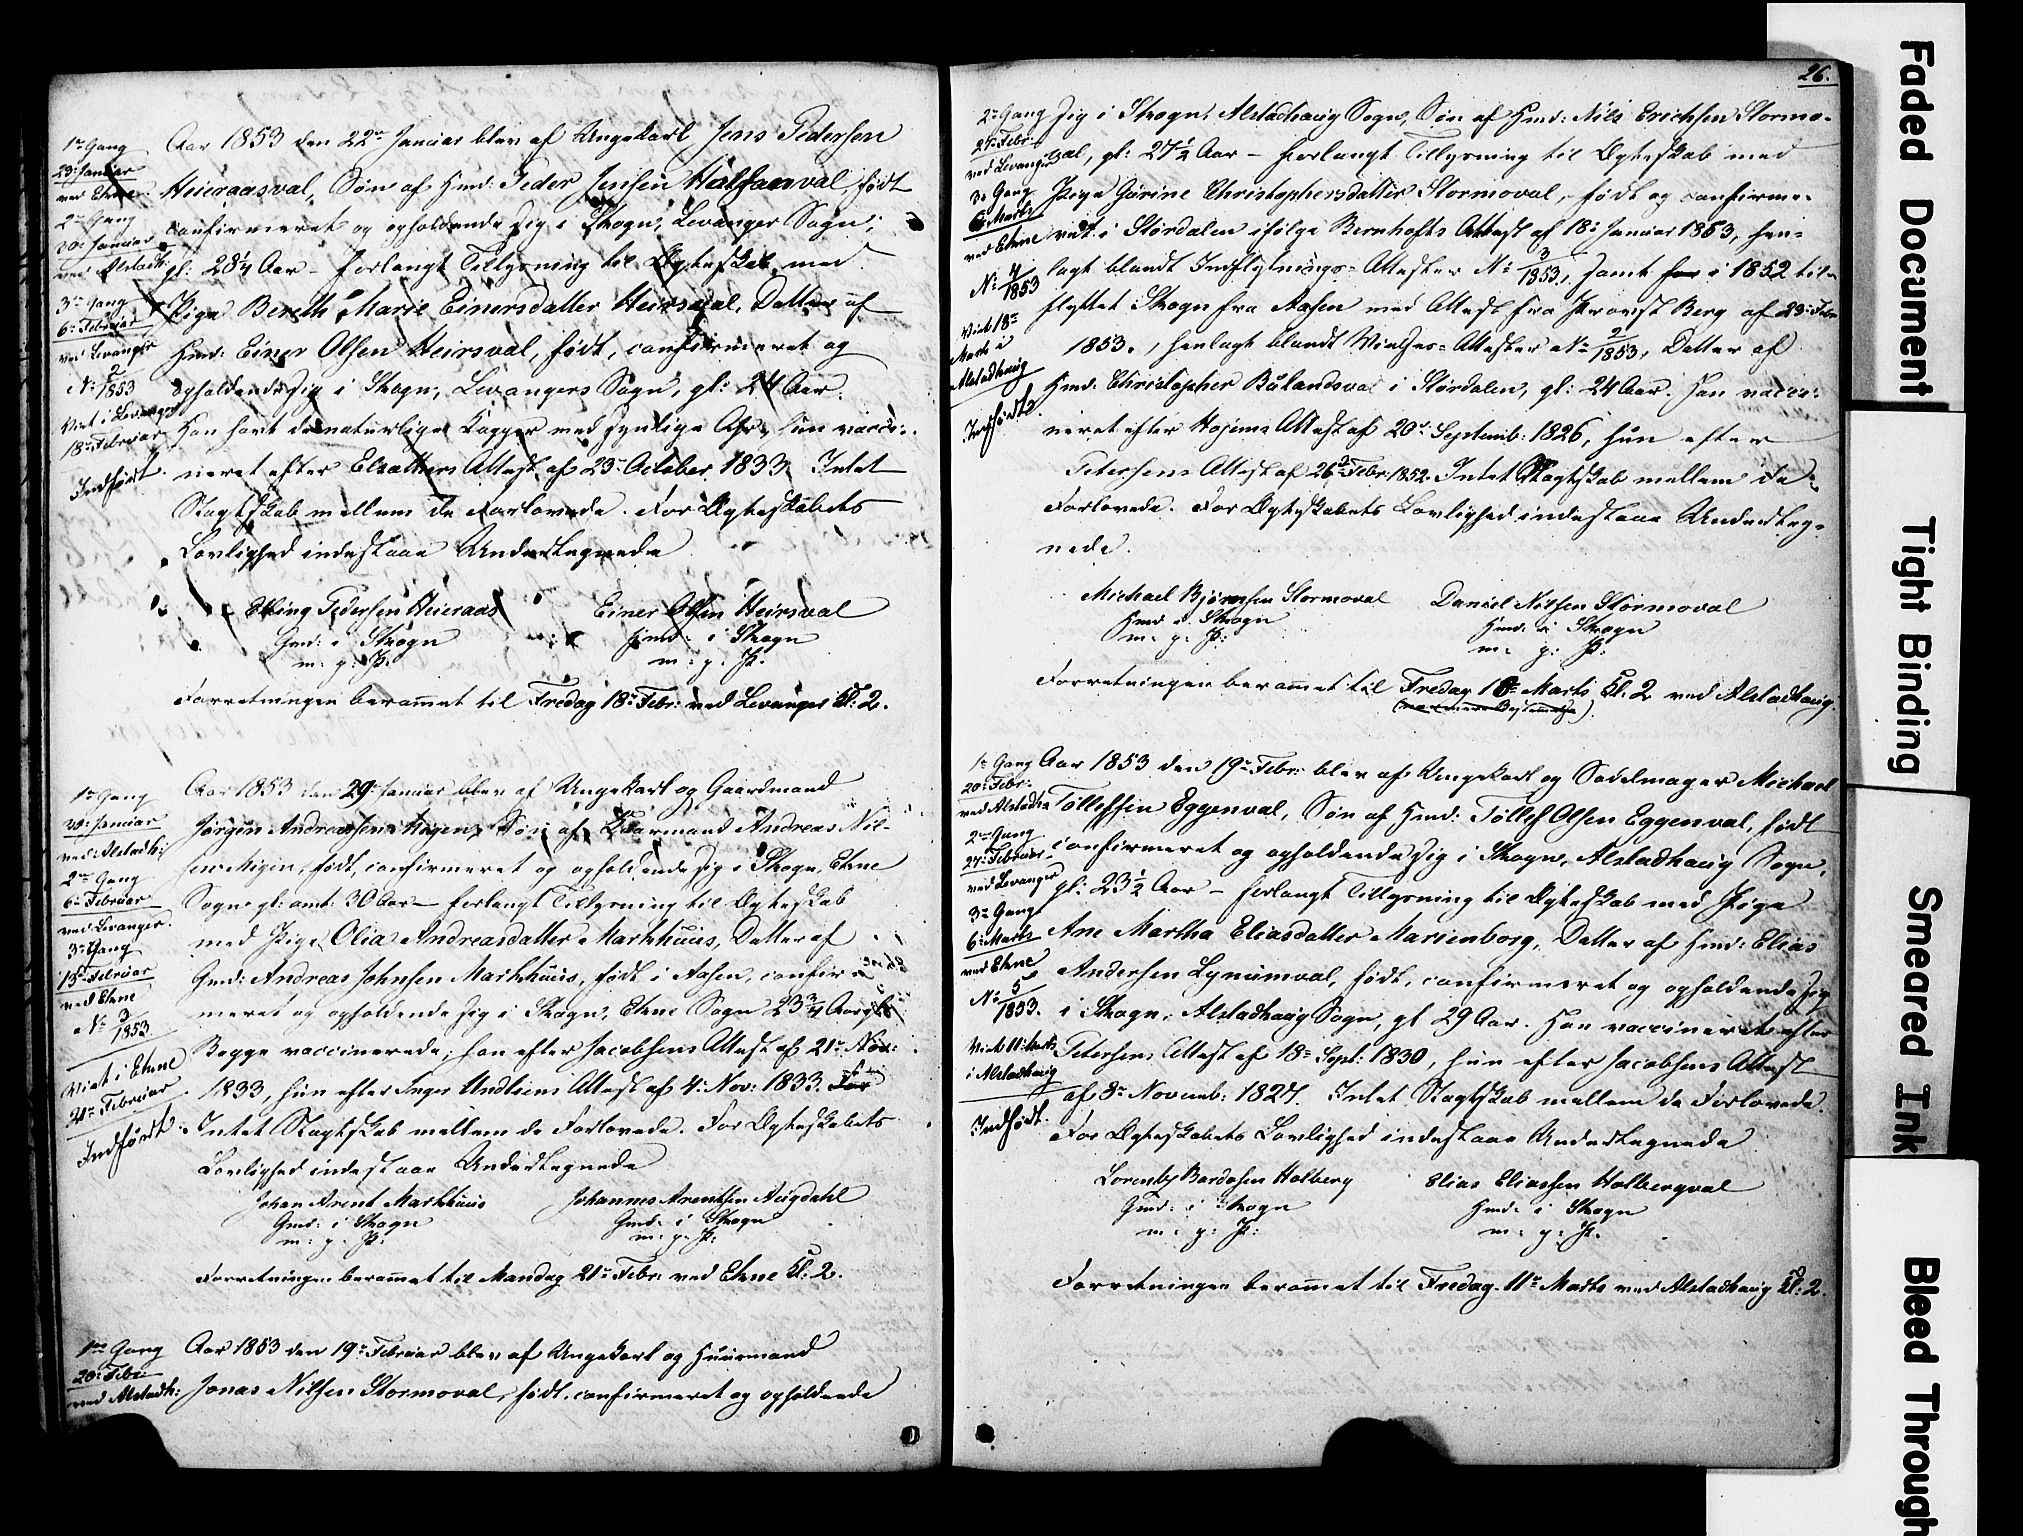 Aar 1853 den 22de Januar blev af Ungekarl Jens Pedersen
Heieraasval, Søn af Hmd: Peder Jensen født
confirmeret og opholdende sig i Skogn, Levanger Sogn,
gl: 28 1/4 Aar – forlangt Tillysning til Ægteskab med
Pige Bereth Marie Einersdatter Heirsval, Datter af
Hmd: Einer Olsen Heirsval, født, confirmeret og
opholdende sig i Skogn, Levangers Sogn, gl: 24 Aar.
Han havt de naturlige Kopper med synlige Ar, hun vacci-
neret efter Attest af 23de October 1833. Intet
Slægtskab mellem de Forlovede. For Ægteskabets
Lovlighed indestaae Undertegnede
Elling Pedersen Heieraas
Gmd: i Skogn
m: p: P:
Einer Olsen Heirsval
Hmd: i Skogn
m: p: P:
Forretningen berammet til Fredag 18de Febr: ved Levanger Kl: 2.
1ste Gang
23de Januar
ved Ekne
2den Gang
30de Januar
ved Alstadh:
3die Gang
6te Februar
ved Levanger
No 2/1853
Viet i Levanger
18de Februar
Indført.
Aar 1853 den 29de Januar blev af Ungekarl og Gaardmand
Jørgen Andreassen Mogen, Søn af Andreas Nil-
sen født, confirmeret og opholdende sig i Skogn, Ekne
Sogn gl: omt: 30 Aar – forlangt Tillysning til Ægteskab
med Pige Olia Andreasdatter Markhuus, Datter af
Gmd: Andreas Johnsen Markhuus, født i Aasen, confir-
meret og opholdende sig i Skogn, Ekne Sogn 23 3/4 Aar gl:
Begge vaccinerede, han efter Jacobsens Attest af 21de Nov:
1833, hun efter Inger Undliens Attest af 4: Nov: 1833. For
Intet Slægtskab mellem de Forlovede. For Ægteskabets
Lovlighed indestaae Undertegnede
Johan Arent Markhuus
Gmd: i Skogn
m: p: P:
Johannes Arentsen Augdahl
Gmd: i Skogn
m: p: P:
Forretningen berammet til Mandag 21de Febr: ved Ekne Kl: 2.
1ste Gang
30te Januar
ved Alstadh:
2den Gang
6te Februar
ved Levanger.
3die Gang
13de Februar
ved Ekne
No 3/1853.
Viet i Ekne
21de Februar
Indført.
1ste Gang
20de Febr:
ved Alstadh:
Aar 1853 den 19de Februar blev af Ungekarl og Huusmand
Jonas Nilsen Stormoval, født, confirmeret og opholdende
26.
sig i Skogn, Alstadhaug Sogn, Søn af Hmd: Nils Erichsen Stormo-
val, gl: 27 1/2 Aar – forlangt Tillysning til Ægteskab med
Pige Gurine Christophersdatter Stormoval, født og confirme-
ret i Størdalen ifølge Bernhofts Attest af 18de Januar 1853, hen-
lagt blandt Indflytnings-Attester No 3/1853, samt i 1852 til-
flyttet Skogn fra Aasen med Attest fra Provst Berg af 23de Febr:
1853, henlagt blandt Vielses-Attester No 2/1853, Datter af
Hmd: Christopher i Størdalen, gl: 24 Aar. Han vacci-
neret efter Hojems Attest af 20de Septemb: 1826, hun efter
Petersens Attest af 26de Febr: 1852. Intet Slægtskab mellem de
Forlovede. For Ægteskabets Lovlighed indestaae Underteg-
nede.
Michael Bjørnsen Stormoval
Hmd: i Skogn
m: p: P:
Daniel Nilsen Stormoval
Hmd: i Skogn
m: p: P:
Forretningen berammet til Fredag 18de Marts Kl: 2 ved Alstadhaug.
2den Gang
27de Febr:
ved Levanger
3die Gang
6te Marts
ved Ekne
No 4/1853
Viet 18de
Marts i
Alstadhaug
Indført.
Aar 1853 den 19de Febr: blev af Ungekarl og Sadelmager Michael
Tøllefsen Eggenval, Søn af Hmd: Tøllef Olsen Eggenval, født
confirmeret og opholdende sig i Skogn, Alstadhaug Sogn,
gl: 23 1/2 Aar – forlangt Tillysning til Ægteskab med Pige
Ane Martha Eliasdatter Marienborg, Datter af Hmd: Elias
Andersen Lynumval, født, confirmeret og opholdende sig
i Skogn, Alstadhaug Sogn, gl 29 Aar. Han vaccineret efter
Petersens Attest af 18de Sept: 1830, hun efter Jacobsens Attest
af 8de Novemb: 1827. Intet Slægtskab mellem de Forlovede.
For Ægteskabets Lovlighed indestaae Undertegnede
Lorents Bardosen Holberg
Gmd: i Skogn
m: p: P:
Elias Eliassen Holbergval
Hmd: i Skogn
m: p: P:
Forretningen berammet til Fredag 11te Marts ved Alstadhaug Kl: 2.
1ste Gang
20de Febr:
ved Alstadha
2den Gang
27de Februar
ved Levanger
3die Gang
6te Marts
ved Ekne
No 5/1853.
Viet 11te Marts
i Alstadhaug
Indført.
Faded Document
Tight Binding
Smeared Ink
Bleed Through